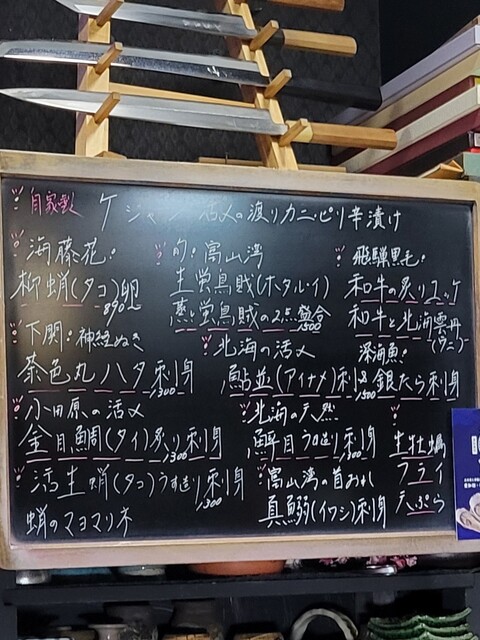 自家製 ケジャン 活〆の渡りカニピリ辛漬け
海藤花:
柳蛸(タコ)卵
890
下関:神経ぬき
茶色丸ハタ刺身
1300
小田原の活〆
金目鯛(タイ)炙り刺身
1300
活生蛸(タコ)うすづくり刺身
1300
蛸のマヨマリネ
旬:富山湾
生蛍烏賊(ホタルイカ)
蒸し蛍烏賊の2点盛合
1500
北海の活〆
鮎並(アイナメ)刺身
1500
北海の天然
鮃目うす造り刺身
1300
富山湾の首おれ
真鰯(イワシ)刺身
飛騨黒毛:
和牛の炙りユッケ
和牛と北海雲丹
(ウニ)
深海魚:
銀たら刺身
生牡蠣
フライ
天ぷら